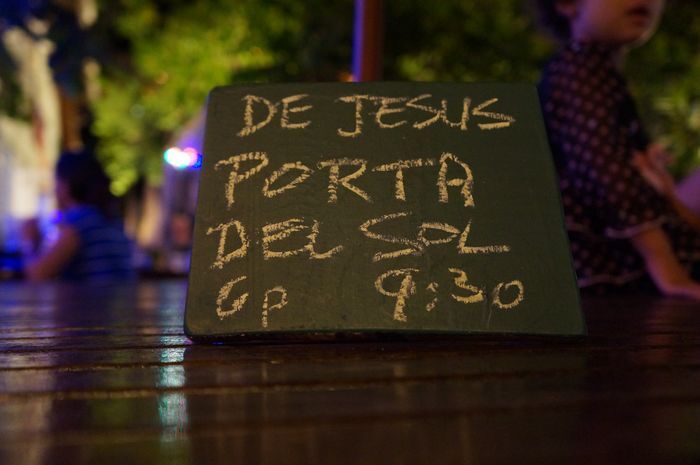 DE JESUS
PORTA
DEL SOL
6P 9:30